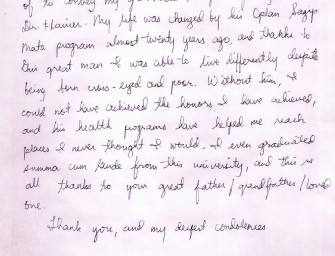 of to convey my
Dr. Hainer. My life was changed by his Oplan Sagip
Mata program almost twenty years ago, and thanks to
this great man I was able to live differently despite
being born cross-eyed and poor. Without him, I
could not have achieved the honors I have achieved,
and his health programs have helped me reach
places I never thought I would. I even graduated
summa cum laude from this university, and this is
all thanks to your great father/grandfather/loved
one.
Thank you, and my deepest condolences